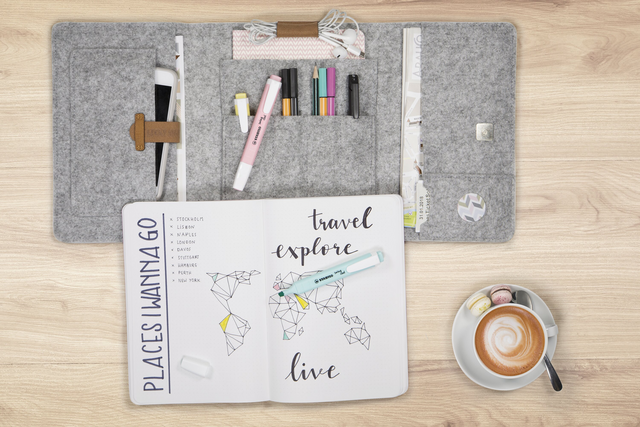 STABILO
PLACES I WANNA GO
STOCKHOLM
LISBON
NAPLES
LONDON
DAVOS
STUTTGART
HAMBURG
PORTO
NEW YORK
travel
explore
STABILO
live